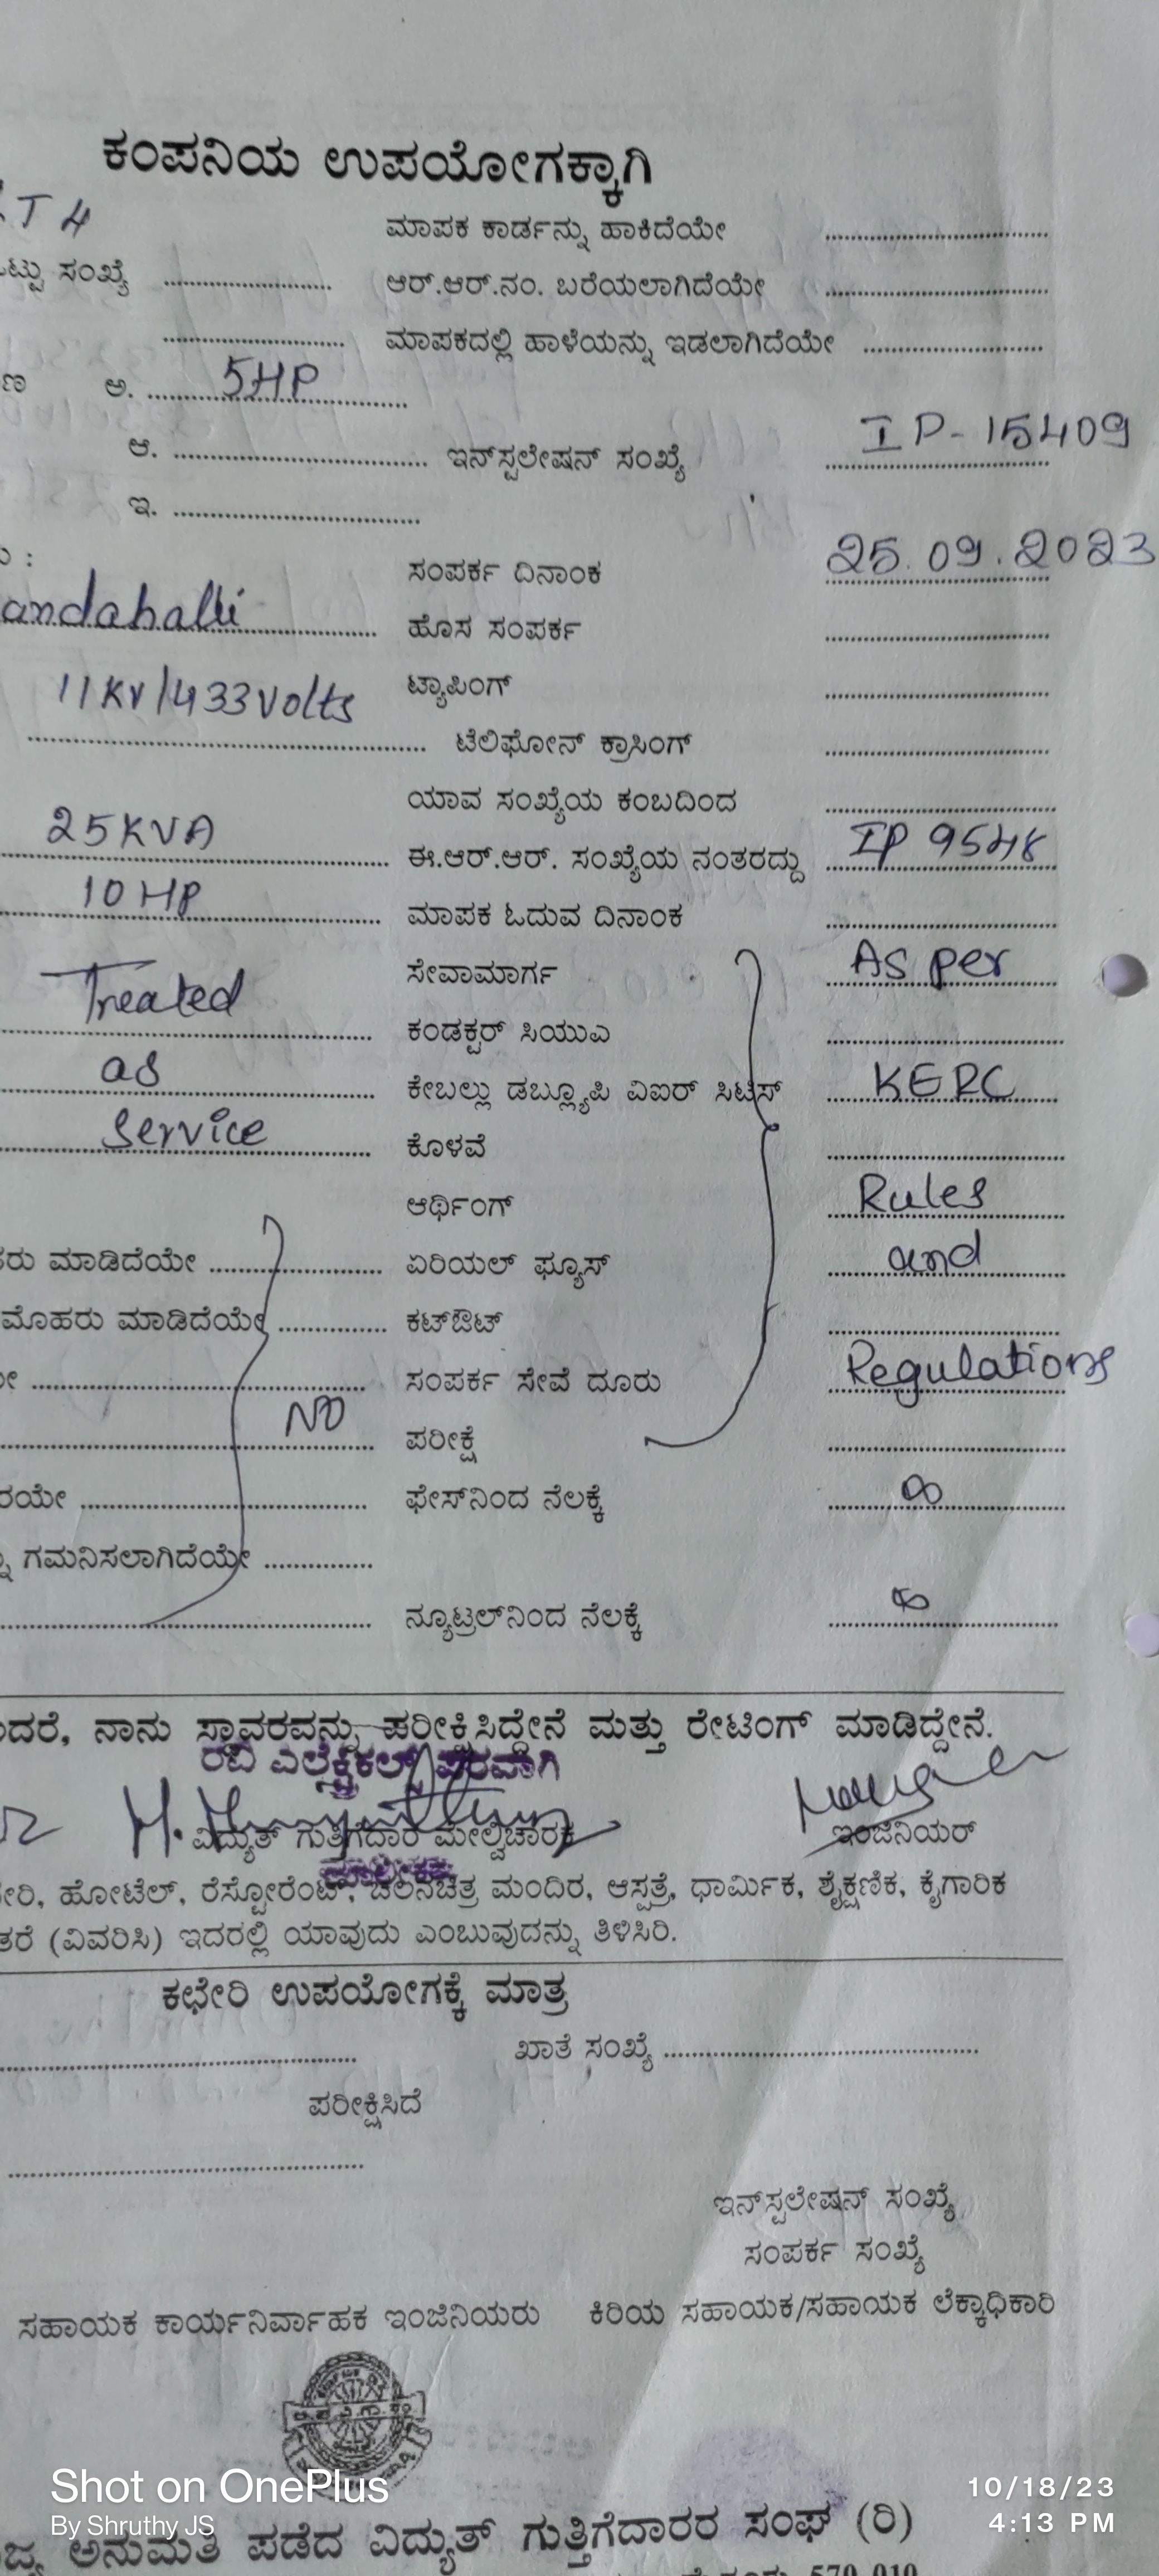 ಕಂಪನಿಯ ಉಪಯೋಗಕ್ಕಾಗಿ
T 4
ಮಾಪಕ ಕಾರ್ಡನ್ನು ಹಾಕಿದೆಯೇ
ಸಂಖ್ಯೆ ಆರ್.ಆರ್.ನಂ. ಬರೆಯಲಾಗಿದೆಯೇ
ಮಾಪಕದಲ್ಲಿ ಹಾಳೆಯನ್ನು ಇಡಲಾಗಿದೆಯೇ
ಅ. 5HP
ಆ. ಇನ್‌ಸ್ಟಲೇಷನ್ ಸಂಖ್ಯೆ IP-15409
ಇ.
ಸಂಪರ್ಕ ದಿನಾಂಕ 25.09.2023
andahalli ಹೊಸ ಸಂಪರ್ಕ
11KV/433Volts ಟ್ಯಾಪಿಂಗ್
ಟೆಲಿಫೋನ್ ಕ್ರಾಸಿಂಗ್
ಯಾವ ಸಂಖ್ಯೆಯ ಕಂಬದಿಂದ
25KVA ಈ.ಆರ್.ಆರ್. ಸಂಖ್ಯೆಯ ನಂತರದ್ದು IP 9548
10 HP ಮಾಪಕ ಓದುವ ದಿನಾಂಕ
Treated ಸೇವಾಮಾರ್ಗ As per
ಕಂಡಕ್ಟರ್ ಸಿಯುಎ
as ಕೇಬಲ್ಲು ಡಬ್ಲ್ಯೂಪಿ ವಿಐರ್ ಸಿಟಿಸ್ KERC
Service ಕೊಳವೆ
ಆರ್ಥಿಂಗ್ Rules
ಮಾಡಿದೆಯೇ ಏರಿಯಲ್ ಫ್ಯೂಸ್ and
ಮೊಹರು ಮಾಡಿದೆಯೇ ಕಟ್‌ಔಟ್
ಸಂಪರ್ಕ ಸೇವೆ ದೂರು Regulations
NO ಪರೀಕ್ಷೆ
ಫೇಸ್‌ನಿಂದ ನೆಲಕ್ಕೆ ∞
ಗಮನಿಸಲಾಗಿದೆಯೇ
ನ್ಯೂಟ್ರಲ್‌ನಿಂದ ನೆಲಕ್ಕೆ ∞
ನಾನು ಸ್ಥಾವರವನ್ನು ಪರೀಕ್ಷಿಸಿದ್ದೇನೆ ಮತ್ತು ರೇಟಿಂಗ್ ಮಾಡಿದ್ದೇನೆ.
ರವಿ ಎಲೆಕ್ಟ್ರಿಕಲ್ಸ್ ಪರವಾಗಿ
ವಿದ್ಯುತ್ ಗುತ್ತಿಗೆದಾರ ಮೇಲ್ವಿಚಾರಕ ಇಂಜಿನಿಯರ್
ಹೋಟೆಲ್, ರೆಸ್ಟೋರೆಂಟ್, ಚಲನಚಿತ್ರ ಮಂದಿರ, ಆಸ್ಪತ್ರೆ, ಧಾರ್ಮಿಕ, ಶೈಕ್ಷಣಿಕ, ಕೈಗಾರಿಕ
(ವಿವರಿಸಿ) ಇದರಲ್ಲಿ ಯಾವುದು ಎಂಬುವುದನ್ನು ತಿಳಿಸಿರಿ.
ಕಛೇರಿ ಉಪಯೋಗಕ್ಕೆ ಮಾತ್ರ
ಖಾತೆ ಸಂಖ್ಯೆ
ಪರೀಕ್ಷಿಸಿದೆ
ಇನ್‌ಸ್ಟಲೇಷನ್ ಸಂಖ್ಯೆ
ಸಂಪರ್ಕ ಸಂಖ್ಯೆ
ಸಹಾಯಕ ಕಾರ್ಯನಿರ್ವಾಹಕ ಇಂಜಿನಿಯರು ಕಿರಿಯ ಸಹಾಯಕ/ಸಹಾಯಕ ಲೆಕ್ಕಾಧಿಕಾರಿ
Shot on OnePlus 10/18/23
By Shruthy JS 4:13 PM
ಅನುಮತಿ ಪಡೆದ ವಿದ್ಯುತ್ ಗುತ್ತಿಗೆದಾರರ ಸಂಘ (ರಿ)
570 010